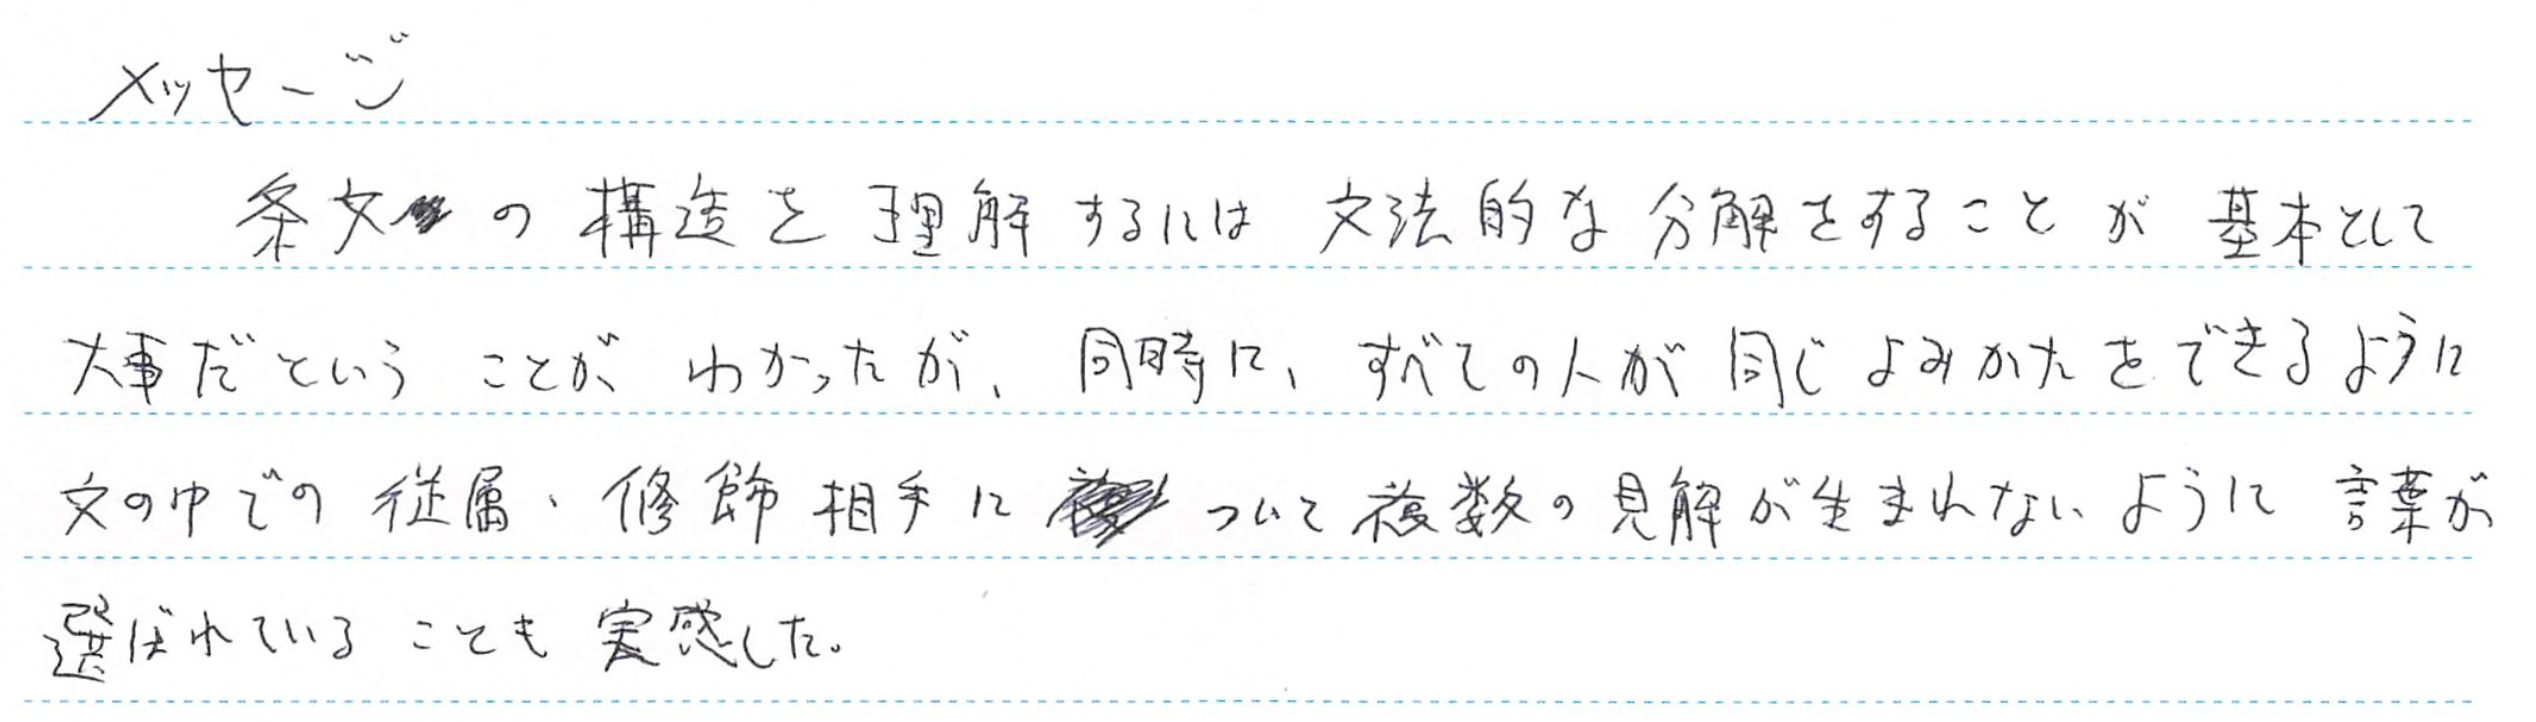 メッセージ
条文の構造を理解するには文法的な分解をすることが基本として
大事だということがわかったが、同時に、すべての人が同じよみかたをできるように
文の中での従属・修飾相手について複数の見解が生まれないように言葉が
選ばれていることも実感した。